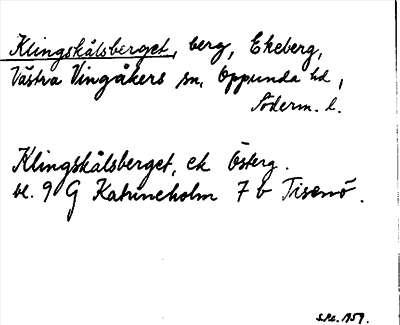 Klingskålsberget, berg, Ekeberg,
Västra Vingåkers sn, Oppunda hd,
Söderm. l.
Klingskålsberget, ek Österg.
bl. 9 G Katrineholm 7 b Tisenö.
1959.